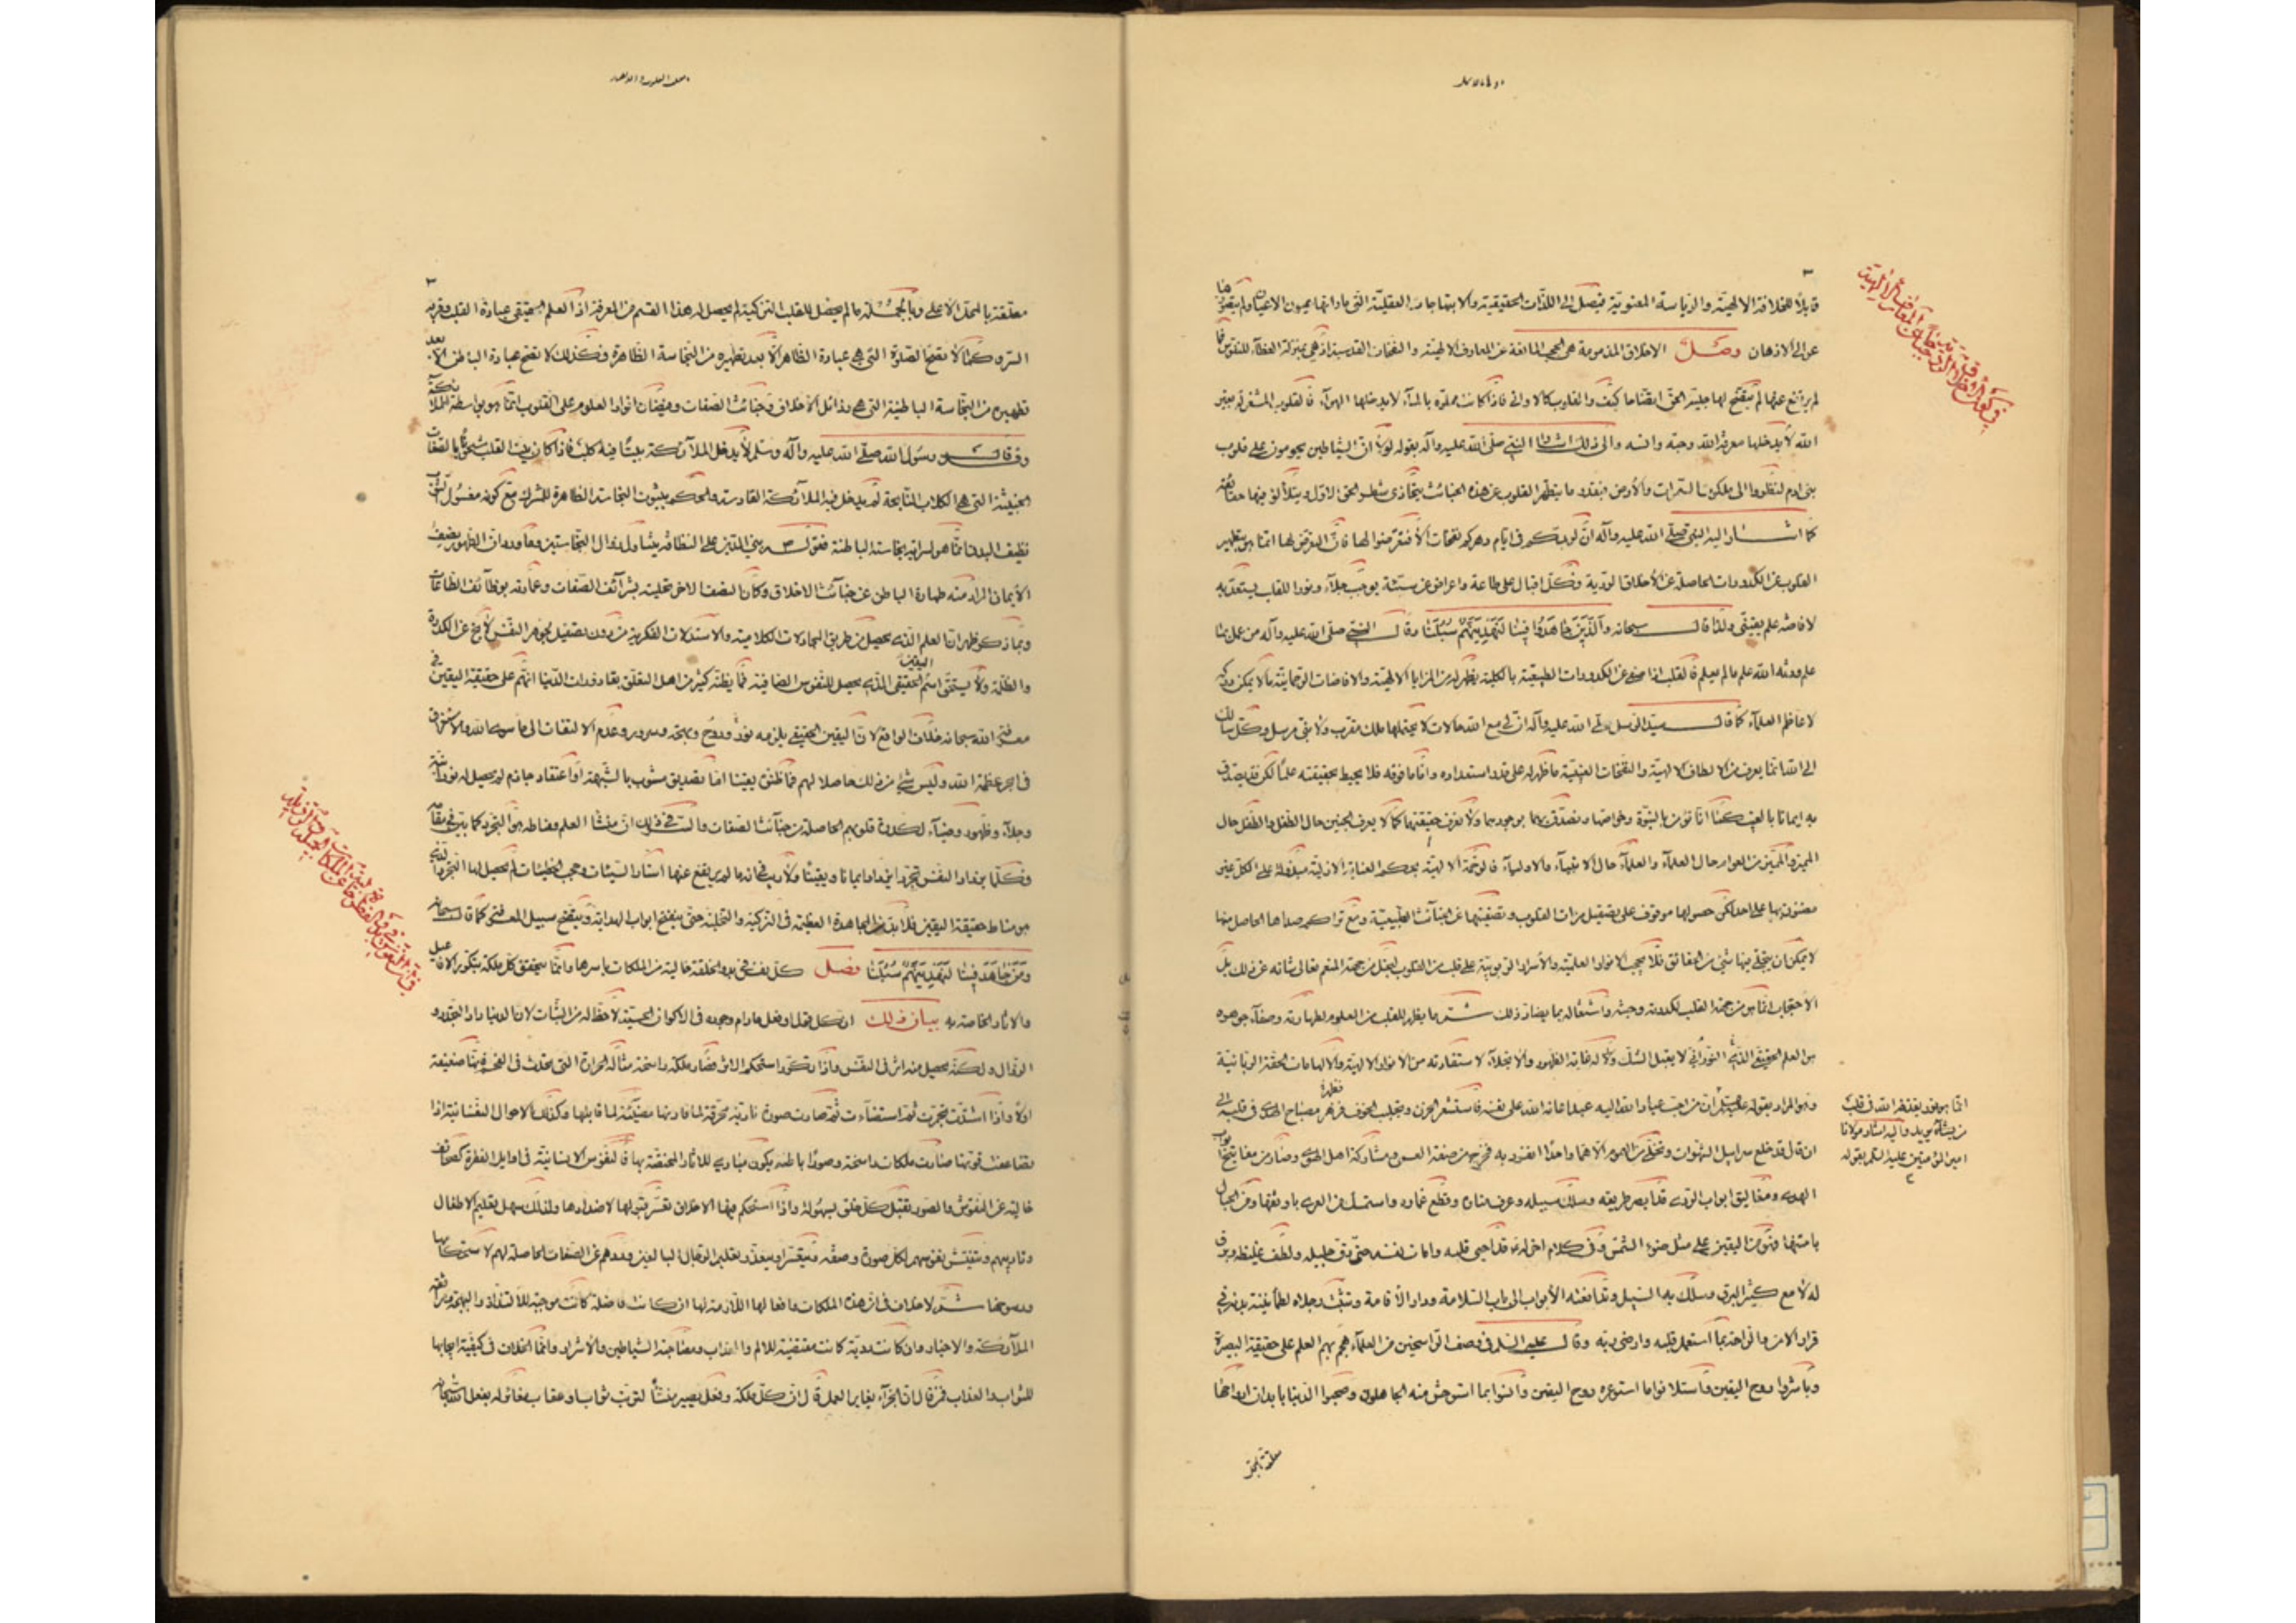 ٢
قابلاً للخلافة الالهيّة والرياسة المعنويّة فيصل الى اللذّات الحقيقية والابتهاجات العقليّة التى ما رأتها عيون الاعيان ولم يتصوّرها
عوالى الاذهان وصل الاخلاق المذمومة هى الحجب المانعة عن المعارف الالهيّة والنفحات القدسية اذ هى بمنزلة الغطاء للنفوس فما
لم يرتفع عنها لم يتّضح لها جليّة الحق اتضاحا كيف والقلوب كالاوانى فاذا كانت مملوّة بالماء لا يدخلها الهواء فالقلوب المشغولة بغير
الله لا يدخلها معرفة الله وحبّه وانسه والى ذلك اشار النبى صلّى الله عليه وآله بقوله لولا انّ الشياطين يحومون على قلوب
بنى ادم لنظروا الى ملكوت السموات والارض فبقدر ما يتطهّر القلوب عن هذه الخبائث يتحاذى شطر الحق الاول ويتلألؤ فيها حقائقه
كما اشار اليه النبى صلّى الله عليه وآله انّ لربّكم فى ايام دهركم نفحات ألا فتعرّضوا لها فانّ التعرض لها انما هو بتطهير
القلوب عن الكدورات الحاصلة عن الأخلاق الرديّة فكلّ اقبال على طاعة واعراض عن سيّئة يوجب جلاء ونورا للقلب يستعدّ به
لافاضة علم يقينى ولذا قال سبحانه والّذين جاهدوا فينا لنهدينّهم سبلنا وقال النبى صلى الله عليه وآله من عمل بما
علم ورثه الله علم ما لم يعلم فالقلب اذا صفى عن الكدورات الطبيعيّة بالكلية يظهر له من المزايا الالهيّة والافاضات الرحمانيّة ما لا يمكن دركه
لاعاظم العلماء كما قال سيد الرسل صلى الله عليه وآله انّ لى مع الله حالات لا يحتملها ملك مقرب ولا نبى مرسل وكلّ سالك
الى الله انما يعرف من الالطاف الالهيّة والنفحات الغيبيّة ما ظهر له على قدر استعداده وامّا ما فوقه فلا يحيط بحقيقته علما لكن قد يصدّق
به ايمانا بالغيب كما انا نؤمن بالنبوة وخواصّها ونصدّق بهما بوجودهما ولا نعرف حقيقتهما كما لا يعرف الجنين حال الطفل والطفل حال
المميز والمميز من العوام حال العلماء والعلماء حال الانبياء والاولياء فالرحمة الالهيّة بحكم العناية الازليّة مبذولة على الكلّ غير
مضنون بها على احد لكن حصولها موقوف على تصقيل مرات القلوب وتصفيتها عن الخبائث الطبيعيّة ومع تراكم صداها الحاصل منها
لا يمكن ان يتجلّى فيها شئ من الحقائق فلا يحجب الانوار العلميّة والأسرار الربوبيّة على قلب من القلوب لبخل من جهة المنعم تعالى شانه عن ذلك بل
الاحتجاب انما هو من جهة القلب لكدورته وخبثه واشتغاله بما يضادّ ذلك ثم ما يظهر للقلب من العلوم لطهارته وصفاء جوهره
هو العلم الحقيقى النورانى الذى لا يقبل الشكّ وله غاية الظهور والانجلاء لاستفادته من الانوار الالهية والالهامات الحقّة الربانية
وهو المراد بقوله عليه السلم انّ من احبّ عباد الله اليه عبدا اعانه الله على نفسه فاستشعر الحزن وتجلبب الخوف فزهر مصباح الهدى فى قلبه الى
ان قال قد خلع سرابيل الشهوات وتخلّى من الهموم الا همّا واحدا انفرد به فخرج من صفة العمى ومشاركة اهل الهوى وصار من مفاتيح ابواب
الهدى ومغاليق ابواب الردى قد ابصر طريقه وسلك سبيله وعرف مناره وقطع غماره واستمسك من العرى باوثقها ومن الجبال
بامتنها فهو من اليقين على مثل ضوء الشمس وفى كلام اخر له قد احيى قلبه وامات نفسه حتى دقّ جليله ولطف غليظه وبرق
له لامع كثير البرق وسلك به السبيل وتدافعته الأبواب الى باب السلامة ودار الأقامة وتثبّت رجلاه لطمأنينة بدنه فى
قرار الامن والراحة بما استعمل قلبه وارضى ربّه وقال عليه السلم فى وصف الراسخين من العلماء هجم بهم العلم على حقيقة البصيرة
وباشروا روح اليقين فاستلانوا ما استوعره المترفون وانسوا بما استوحش منه الجاهلون وصحبوا الدنيا بابدان ارواحها
معلقة بالمحل
انما هو نور يقذفه الله فى قلب
من يشاء ويريد واليه اشار مولانا
امير المؤمنين عليه السلم بقوله
٣
معلقة بالمحلّ الاعلى وبالجملة ما لم يحصل للقلب التزكية لم يحصل له هذا القسم من المعرفة اذ العلم الحقيقى عبادة القلب وقربة
السرّ وكما لا تصحّ الصلوة التى هى عبادة الظاهر الا بعد تطهيره من النجاسة الظاهرة فكذلك لا تصحّ عبادة الباطن الا بعد
تطهيره من النجاسة الباطنية التى هى رذائل الأخلاق وخبائث الصفات وفيضان انوار العلوم على القلوب انما هو بواسطة الملائكة
وقد قال رسول الله صلّى الله عليه وآله وسلم لا يدخل الملائكة بيتا فيه كلب فاذا كان بيت القلب مشحونا بالصفات
الخبيثة التى هى الكلاب النابحة لم يدخل فيه الملائكة القادسة والحكم بثبوت النجاسة الظاهرة للمشرك مع كونه مغسول الثوب
نظيف البدن انما هو لسراية نجاسته الباطنة فقوله ص بنى الدّين على النظافة يتناول زوال النجاستين وما ورد ان الطهور نصف
الأيمان المراد منه طهارة الباطن عن خبائث الاخلاق وكان النصف الاخر تحليته بشرائف الصفات وعمارته بوظائف الطاعات
وبما ذكر ظهر انّ العلم الذى يحصل من طريق المجادلات الكلامية والاستدلالات الفكرية من دون تصقيل لجوهر النفس لا يخ عن الكدرة
والظلمة ولا يستحقّ اسم اليقين الحقيقى الذى يحصل للنفوس الصافية فما يظنّه كثير من اهل التعلّق بقاذورات الدنيا انّهم على حقيقة اليقين فى
معرفة الله سبحانه خلاف الواقع لانّ اليقين الحقيقى يلزمه نور وروح وبهجة وسرور وعدم الالتفات الى ما سوى الله والاستغراق
فى ابحر عظمة الله وليس شئ من ذلك حاصلا لهم فما ظنّوه يقينا امّا تصديق مشوب بالشبهة او اعتقاد جازم لم يحصل له نورانيّة
وجلاء وظهور وضياء لكدرة قلوبهم الحاصلة من خبائث الصفات والسرّ فى ذلك ان منشأ العلم ومناطه هو التجرّد كما بيّن فى مقامه
فكلّما يزداد النفس تجرّدا يزداد ايمانا ويقينا ولا ريب فى انه ما لم يرتفع عنها استار السيّئات وحجب الخطيئات لم يحصل لها التجرد الذى
هو مناط حقيقة اليقين فلا بدّ من المجاهدة العظيمة فى التزكية والتحلية حتى ينفتح ابواب الهداية ويتضح سبيل المعرفة كما قال سبحانه
والّذين جاهدوا فينا لنهدينّهم سبلنا فصل كل نفس فى بدو الخلقة خالية من الملكات باسرها وانما يتحقق كلّ ملكة بتكرر الافاعيل
والاثار الخاصة به بيان ذلك ان كل قول او فعل ما دام وجوده فى الاكوان الحسية لا حظّ له من الثبات لان الدنيا دار التجدد و
الزوال ولكنّه يحصل منه اثر فى النفس فاذا تكرّر استحكم الاثر فصار ملكة راسخة مثاله الحرارة التى تحدث فى الفحم فانها ضعيفة
اولا واذا اشتدّت تجمّرت ثم استضاءت ثم صارت صورة نارية محرقة لما قارنها مضيئة لما قابلها وكذلك الاحوال النفسانية اذا
تضاعفت قوتها صارت ملكات راسخة وصورا باطنة يكون مبادى للاثار المختصّة بها فالنفوس الانسانيّة فى اوايل الفطرة كصحائف
خالية عن النقوش والصور يقبل كلّ خلق بسهولة واذا استحكم فيها الاخلاق تعسّر قبولها لاضدادها ولذلك سهل تعليم الاطفال
وتاديبهم وتنقيش نفوسهم بكل صورة وصفة ويتعسّر او يتعذّر تعليم الرجال البالغين وردّهم عن الصفات الحاصلة لهم لاستحكامها
ورسوخها ثم لا خلاف فى ان هذه الملكات وافعالها اللازمة لها ان كانت فاضلة كانت موجبة للالتذاذ والبهجة ومرافقة
الملائكة والاخيار وان كانت رديّة كانت مقتضية للالم والعذاب ومصاحبة الشياطين والأشرار وانما الخلاف فى كيفية ايجابها
للثواب والعذاب فمن قال ان الجزاء يغاير العمل قال ان كلّ ملكة وفعل يصير منشأ لترتب ثواب او عقاب مغاير له بفعل الله سبحانه